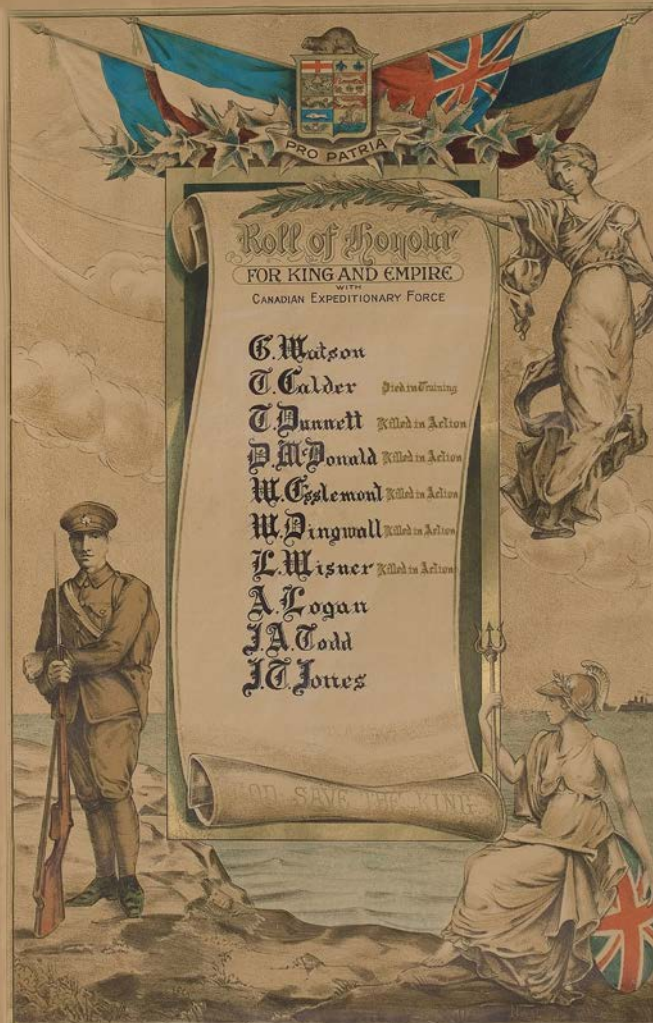 PRO PATRIA
Roll of Honour
FOR KING AND EMPIRE
WITH
CANADIAN EXPEDITIONARY FORCE
G. Watson
T. Calder Died in Training
T. Dunnett Killed in Action
D. McDonald Killed in Action
W. Esslemont Killed in Action
W. Dingwall Killed in Action
L. Wisner Killed in Action
A. Logan
J. A. Todd
J. T. Jones
GOD SAVE THE KING